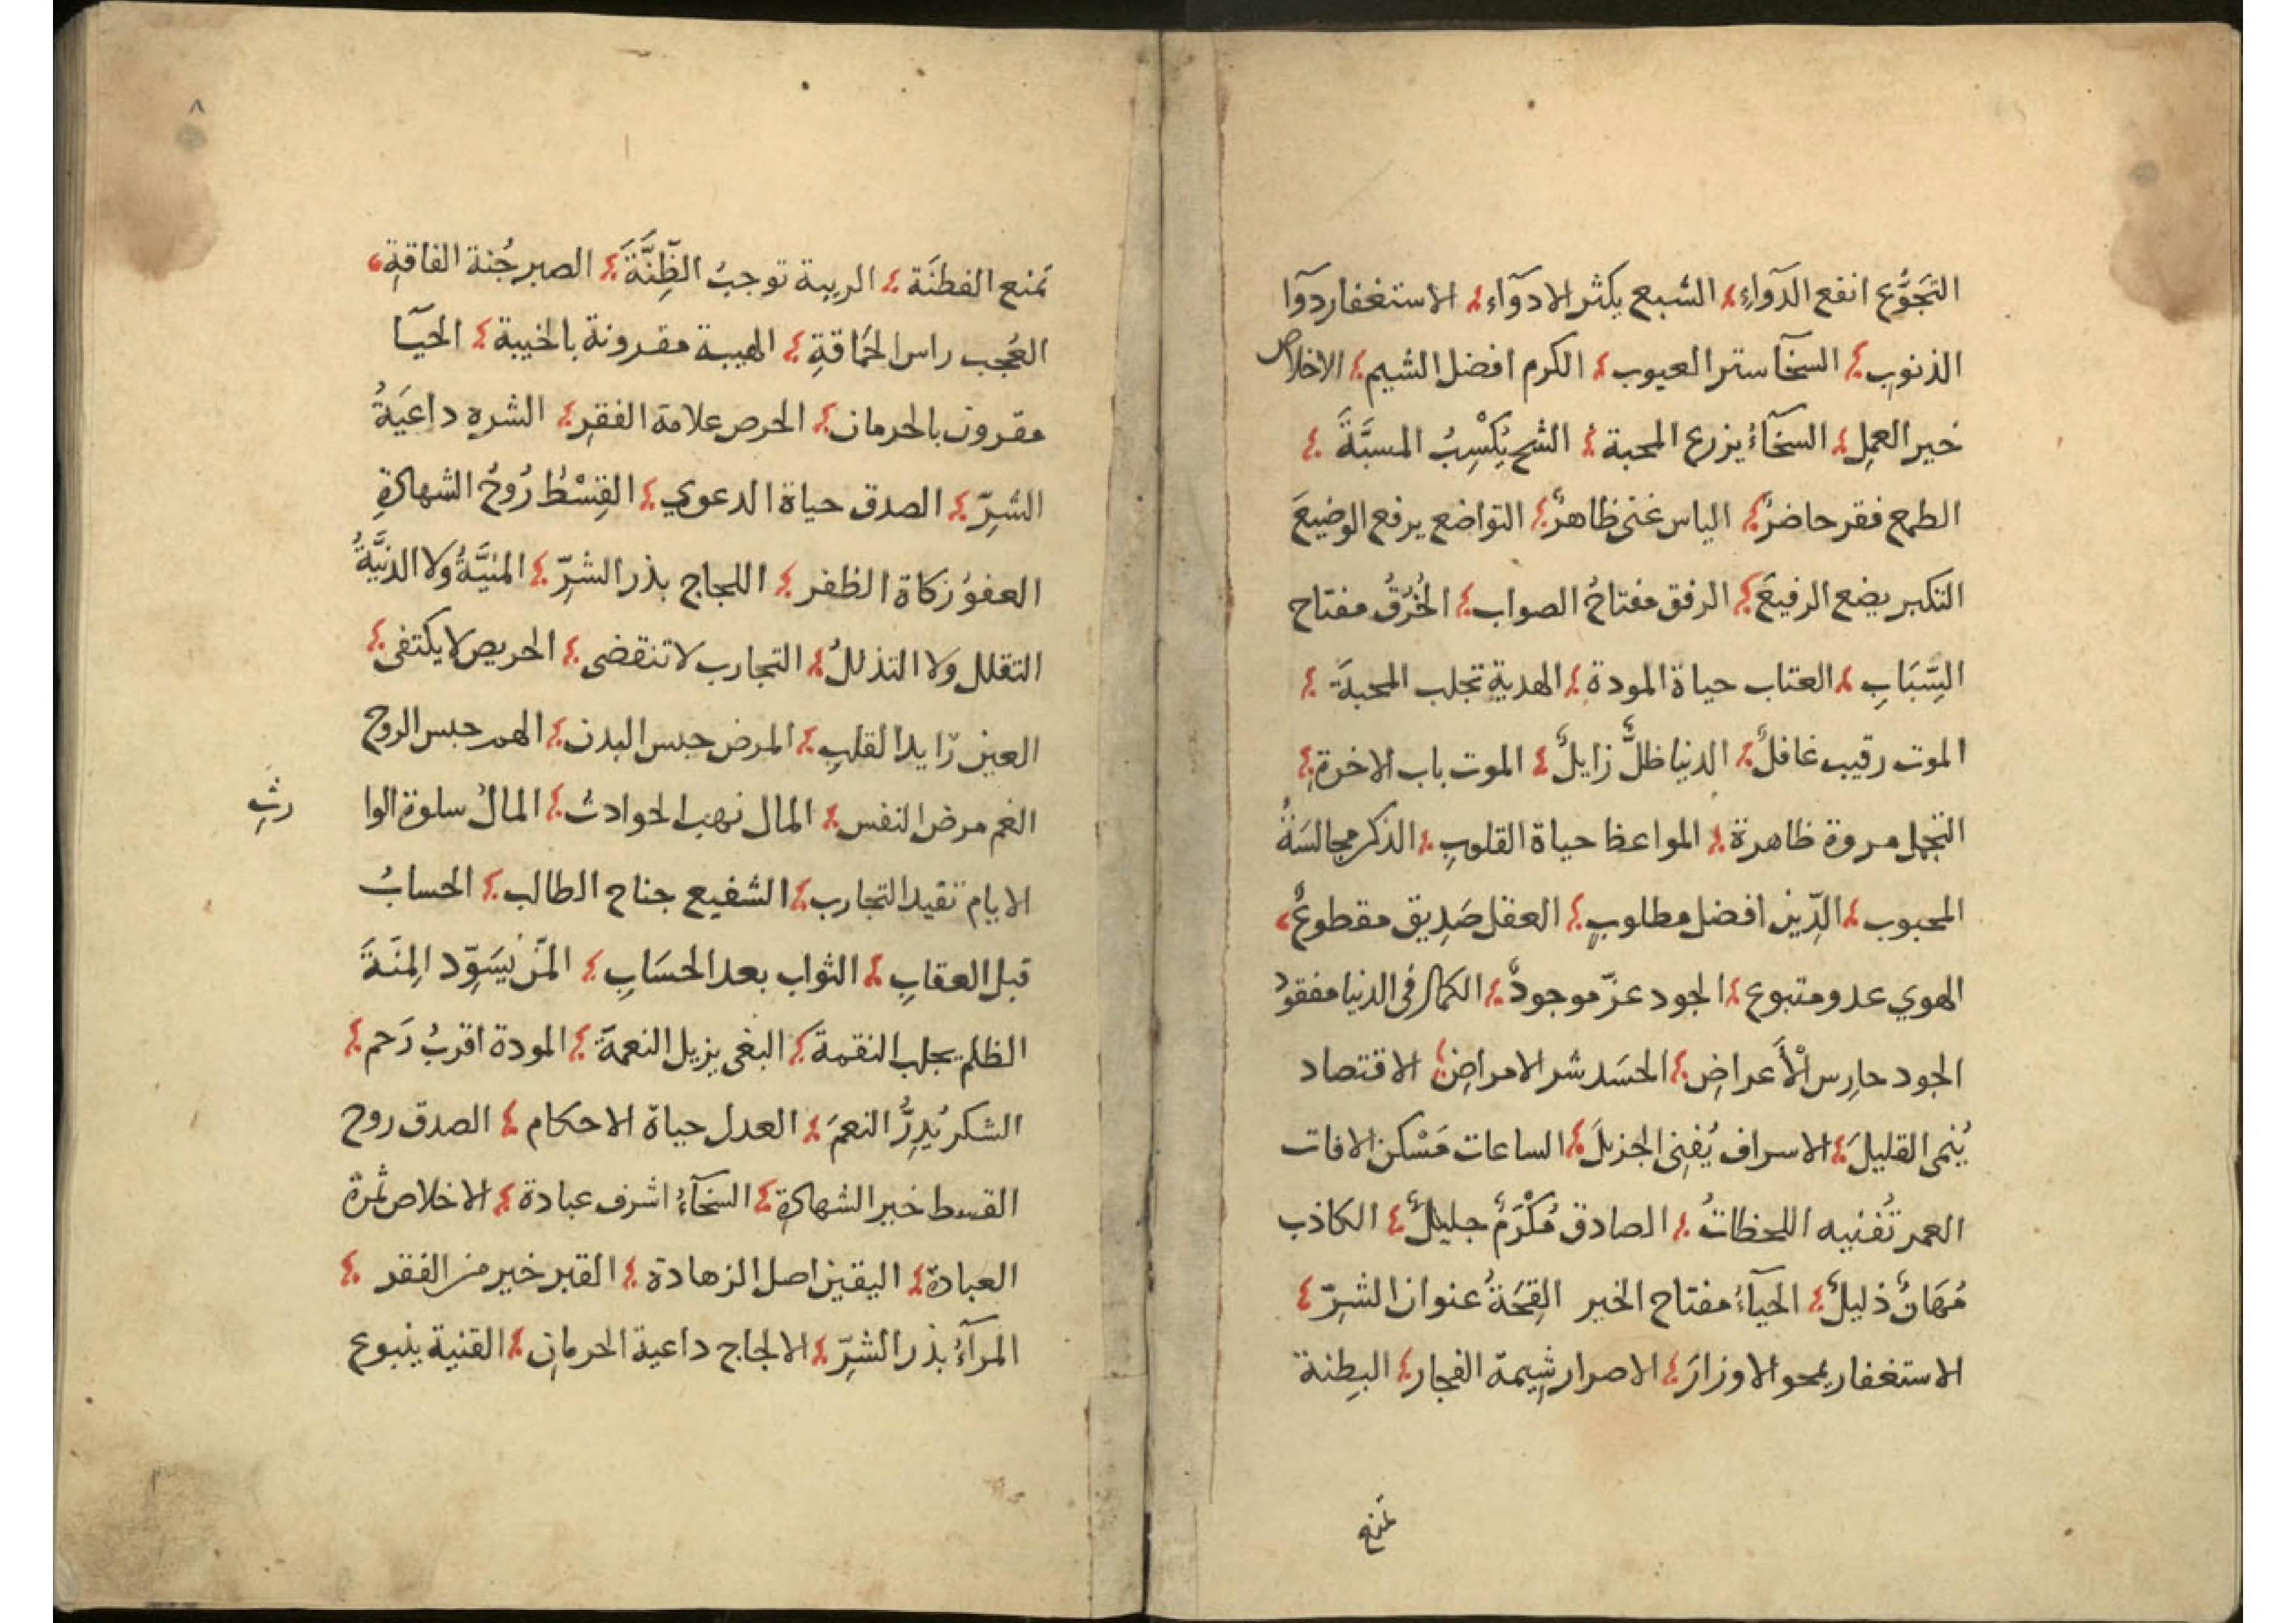 التَجَوُّع انفع الدوآءِ؛ الشبع يكثر الادوآءِ؛ الاستغفار دوآ
الذنوبِ؛ السخآ ستر العيوب؛ الكرم افضل الشيم؛ الاخلاص
خير العملِ؛ السخآءُ يزرع المحبة؛ الشح يُكْسِبُ المسبَّةَ؛
الطمع فقر حاضرٌ؛ الياس غنى ظاهرٌ؛ التواضع يرفع الوضيعَ
التكبر يضع الرفيعَ؛ الرفق مفتاحُ الصواب؛ الخُرُقُ مفتاح
السِّبَابِ؛ العتاب حياة المودة؛ الهدية تجلب المحبةَ؛
الموت رقيب غافلٌ؛ الدنيا ظلٌّ زايلٌ؛ الموت باب الاخرةِ؛
التجمل مروة ظاهرة؛ المواعظ حياة القلوبِ؛ الذكر مجالسَةُ
المحبوب؛ الدِّين افضل مطلوبٍ؛ العقل صَدِيق مقطوعٌ؛
الهوي عدو متبوع؛ الجود عزّ موجودٌ؛ الكمال فى الدنيا مفقودُ
الجود حارِس الْأَعراضِ؛ الحسَد شر الامراضِ؛ الاقتصاد
يُنمى القليلَ؛ الاسراف يُفنِى الجزيلَ؛ الساعات مَسْكن الافات
العمر تُفنيه اللحظاتُ؛ الصادق مُكْرَمٌ جليلٌ؛ الكاذب
مُهَانٌ ذليلٌ؛ الحياءُ مفتاح الخير القِحَةُ عنوان الشرِّ؛
الاستغفار يمحو الاوزارَ؛ الاصرار شِيمة الفجار؛ البِطنة
تمنع
٨
تمنع الفطنَة؛ الريبة توجبُ الظِّنَّةَ؛ الصبر جُنة الفاقةِ؛
العُجب راس الحَماقةِ؛ الهيبة مقرونة بالخيبة؛ الحيآ
مقرون بالحرمان؛ الحرص علامة الفقرِ؛ الشره داعيَةُ
الشرِّ؛ الصدق حياة الدعوي؛ القِسْطُ رُوحُ الشهادةِ
العفوُ زكاة الظفر؛ اللجاج بذر الشرِّ؛ المنيَّةُ وَلا الدنيَّةُ
التقلل وَلا التذللُ؛ التجارب لا تنقضى؛ الحريص لا يكتفى؛
العين رَايد القلبِ؛ المرض حبس البدن؛ الهم حبس الروح
الغم مرض النفس؛ المال نهب الحوادثُ؛ المالُ سلوة الوا
رثِ
الايام تفيد التجارب؛ الشفيع جناح الطالب؛ الحسابُ
قبل العقابِ؛ الثواب بعد الحسَابِ؛ المَن يُسَوِّد المِنَةَ
الظلم يجلب النقمةَ؛ البغى يزيل النعمةَ؛ المودة اقربُ رَحم؛
الشكر يُدِرُّ النعمَ؛ العدل حياة الاحكام؛ الصدق روح
القسط خير الشهادةِ؛ السخآءُ اشرف عبادة؛ الاخلاص ثمرة
العبادة؛ اليقين اصل الزهادة؛ القبر خير من الفقر؛
المرآءُ بذر الشرِّ؛ الالجاج داعية الحرمانِ؛ القنية ينبوع